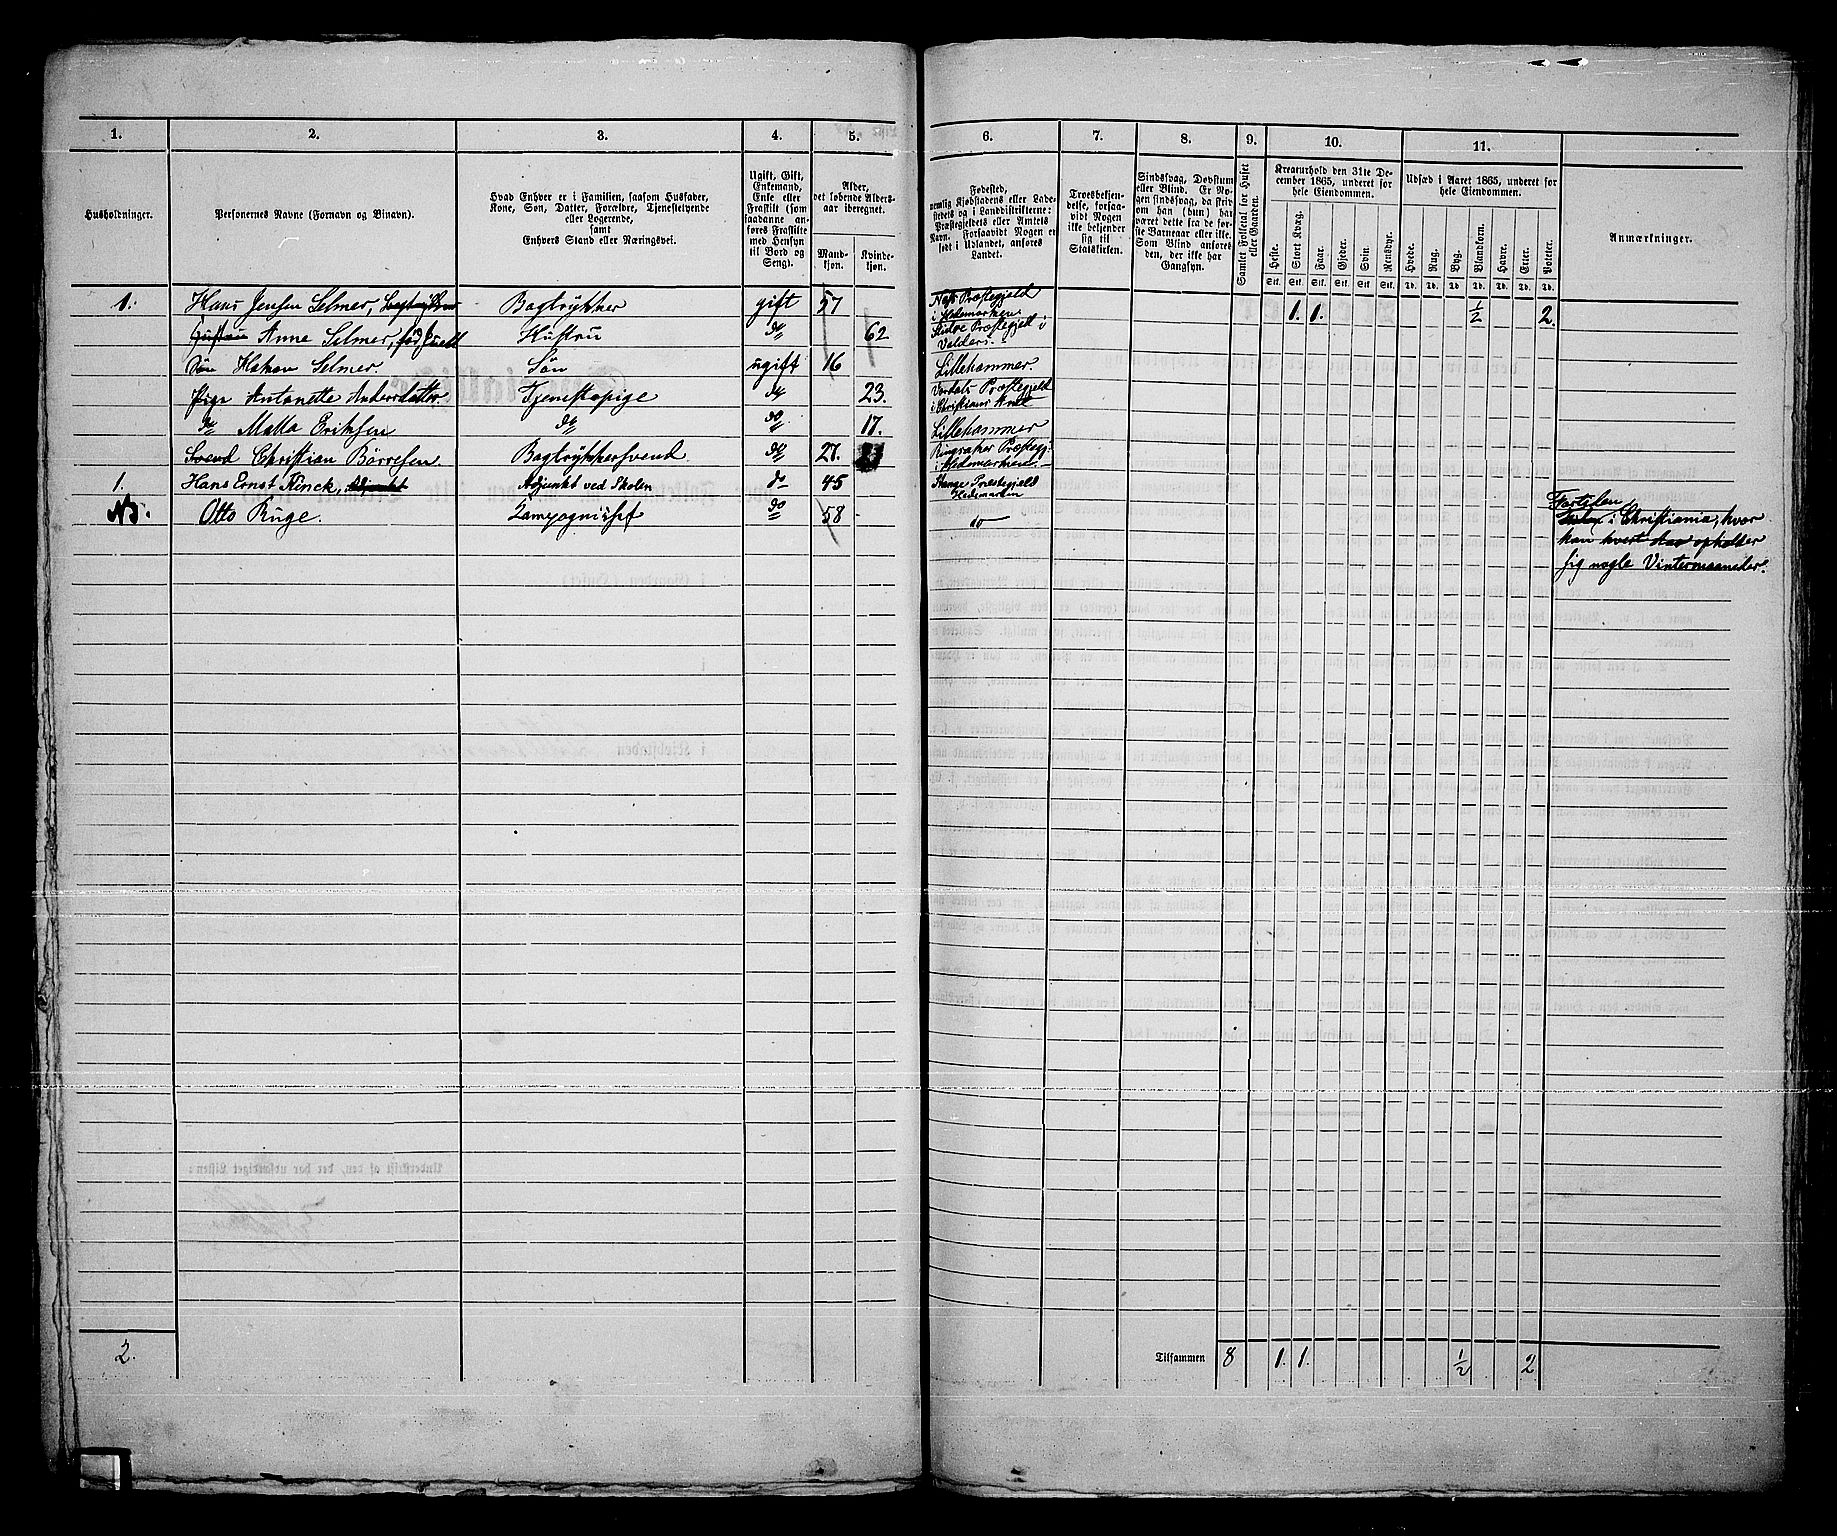 1. 2. 3. 4. 5. 6. 7. 8. 9. 10. 11.
Husholdninger.
Personernes Navne (Fornavn og Binavn).
Hvad Enhver er i Familien, saasom Husfader,
Kone, Søn, Datter, Forældre, Tjenestetyende
eller Logerende,
samt
Enhvers Stand eller Næringsvei.
Ugift, Gift,
Enkemand,
Enke eller
Fraskilt (som
saadanne an-
føres Fraskilte
med Hensyn
til Bord og
Seng).
Alder,
det løbende Alders-
aar iberegnet.
Mand-
kjøn.
Kvinde-
kjøn.
Fødested,
nemlig Kjøbstadens eller Lade-
stedets og i Landdistrikterne:
Præstegjeldets eller Amtets
Navn. Forsaavidt Nogen er
født i Udlandet, anføres
Landet.
Troesbekjen-
delse, forsaa-
vidt Nogen
ikke bekjender
sig til
Statskirken.
Sindssvag, Døvstum
eller Blind. Er No-
gen sindssvag, da skriv
om han (hun) har
været dette fra de før-
ste Barneaar eller ikke.
Som Blind anføres
den, der ikke har
Gangsyn.
Samlet Folketal for Huset
eller Gaarden.
Kreaturhold den 31te De-
cember 1865, underet for
hele Eiendommen.
Heste. Stort Kvæg. Faar. Gjeder. Svin. Rensdyr.
Stk. Stk. Stk. Stk. Stk. Stk.
Udsæd i Aaret 1865, underet for
hele Eiendommen.
Hvede. Rug. Byg. Blandkorn. Havre. Erter. Poteter.
Td. Td. Td. Td. Td. Td. Td.
Anmærkninger.
1. Hans Jensen Selmer, Bogtrykker gift 57 Næs Præstegjeld 1. 1. ½ 2.
i Hedemarken
Anne Selmer, fød Quell Hustru do 62 Slidre Præstegjeld i
Valders.
Søn Hakon Selmer Søn ugift 16 Lillehammer.
Pige Antonette Andersdatter Tjenestepige do 23. Præstegjeld
i Christians Amt
do Matta Eriksen do do 17. Lillehammer
Svend Christian Børresen Bogtrykkersvend do 27. Ringsaker Præstegj.
i Hedemarken
1. Hans Ernst Ninck, Adjunkt Adjunkt ved Skolen do 45 Stange Præstegjeld
Hedemarken
Otto Ruge. do 58 do
i Christiania, hvor
han hvert Aar opholder
sig nogle Vintermaaneder.
2.
Tilsammen 8 1. 1. ½ 2